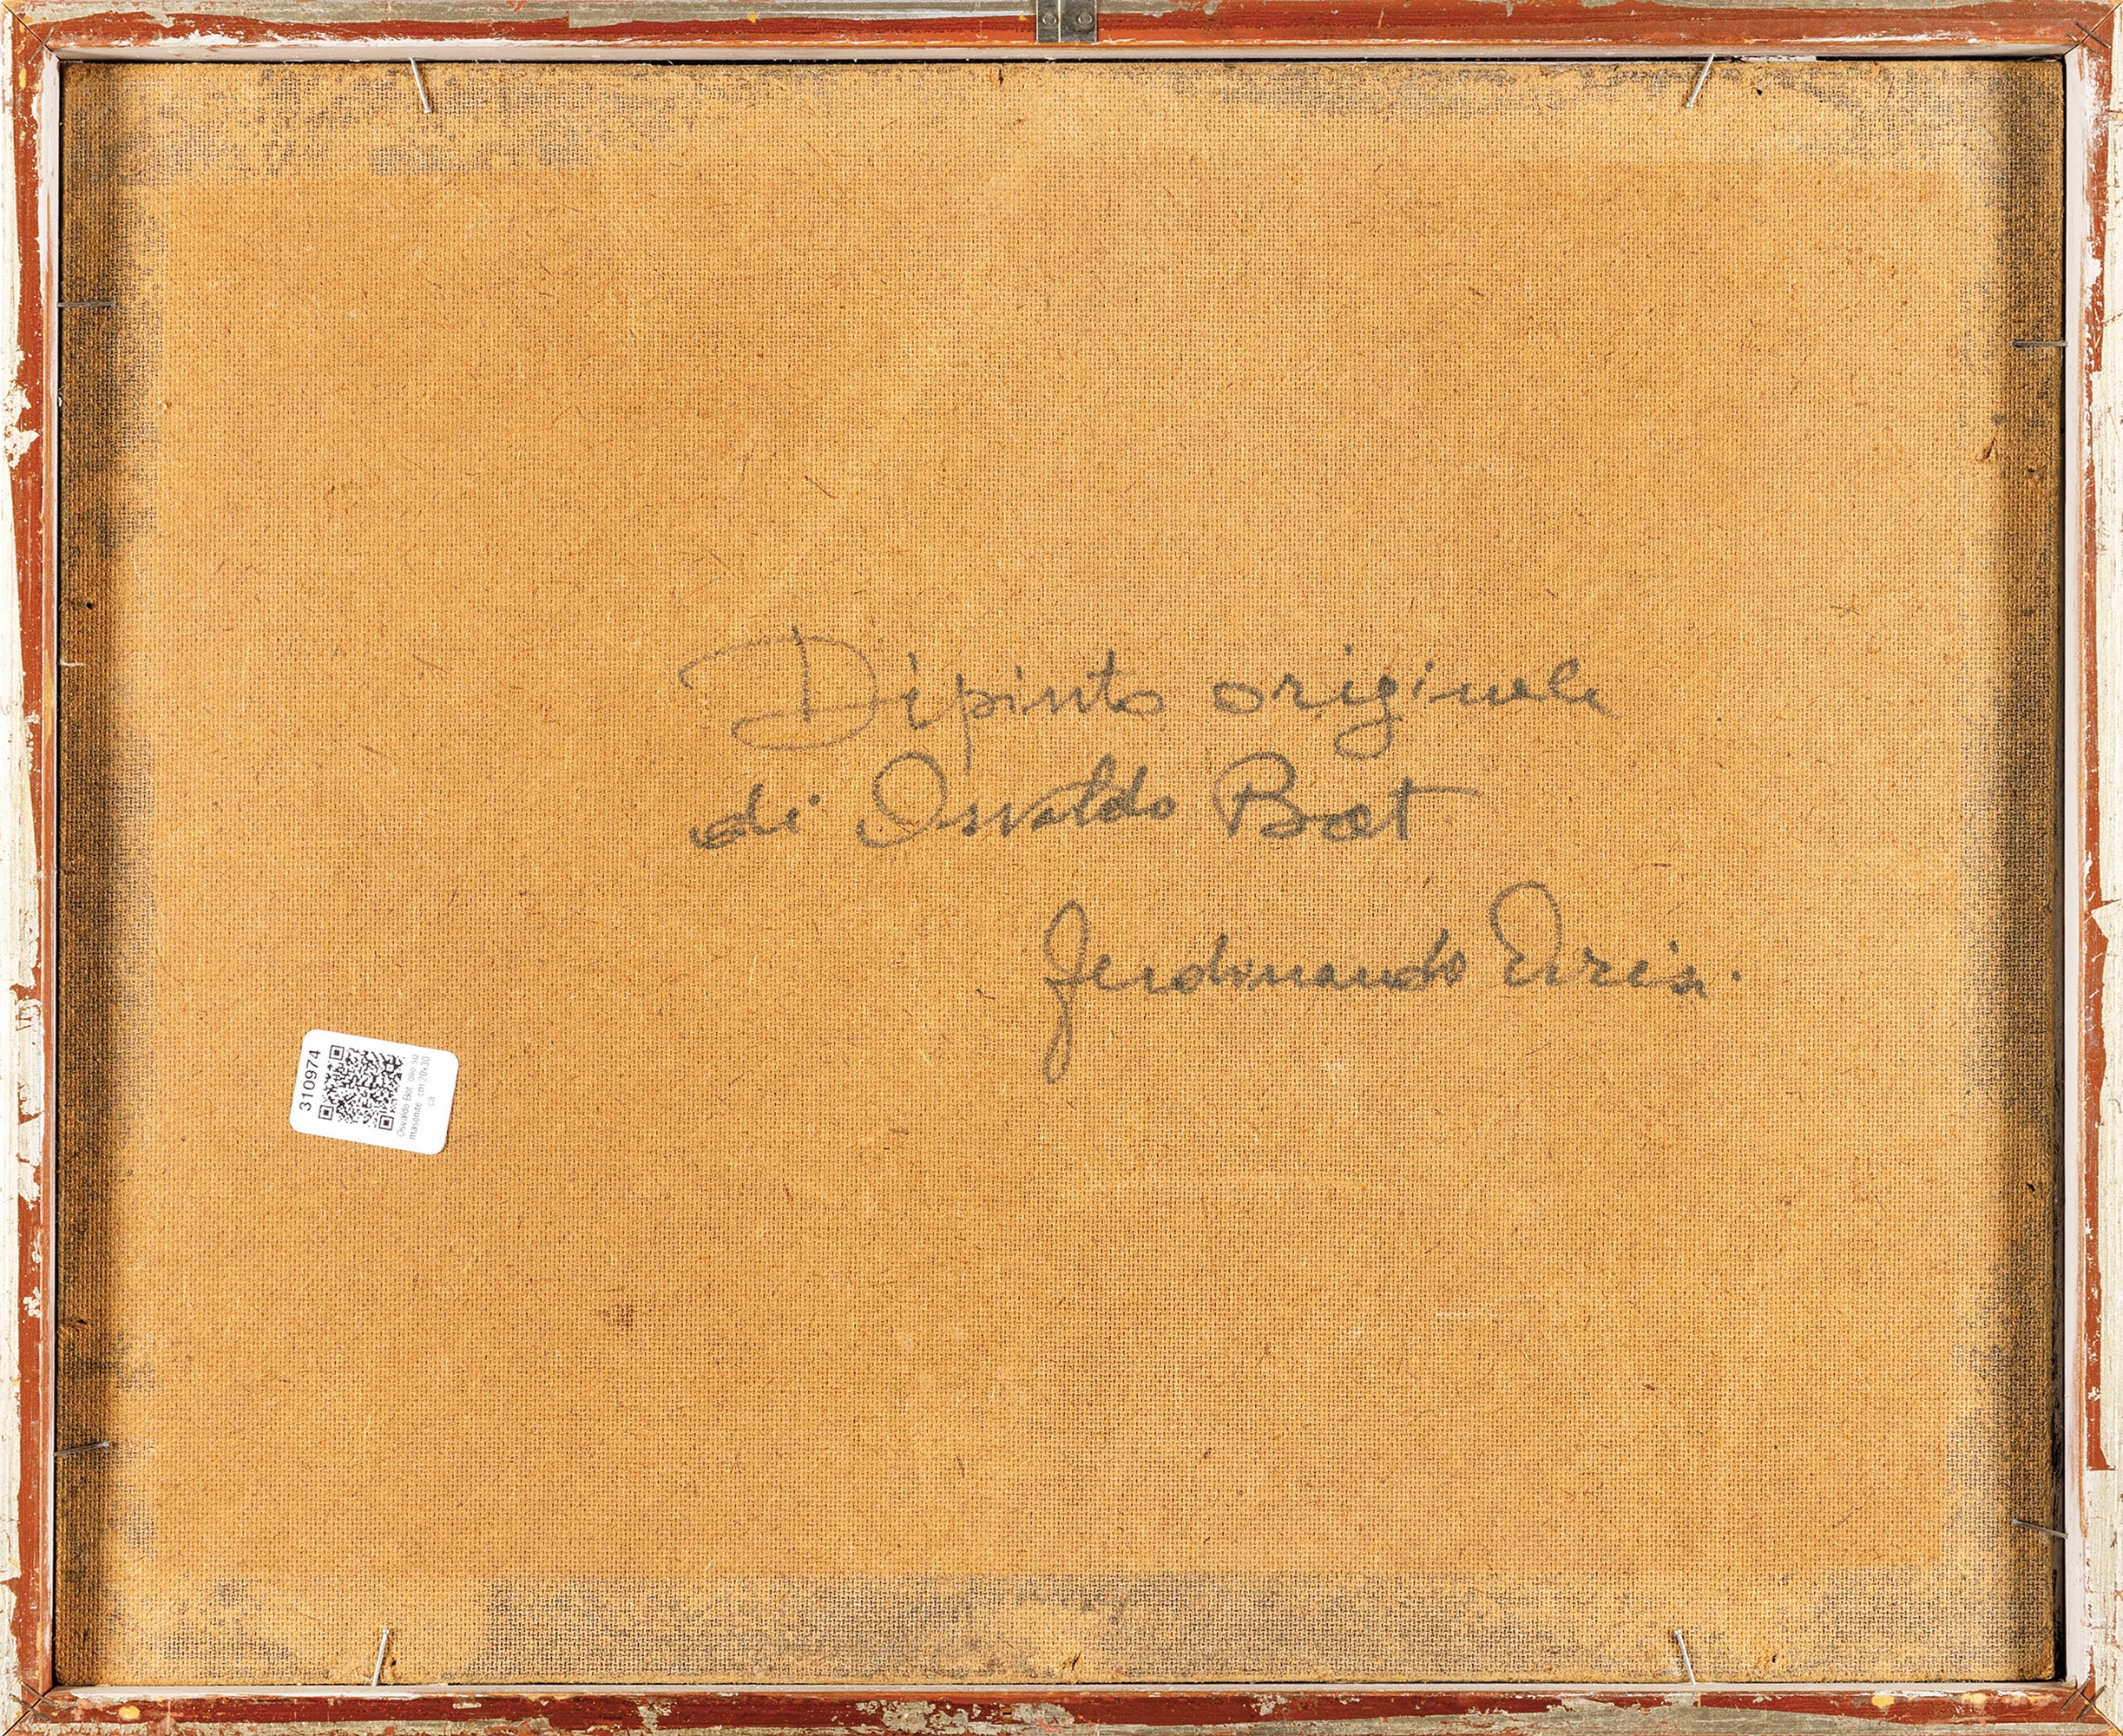 Dipinto originale
di Osvaldo Bot
Ferdinando
310974
Osvaldo Bot olio su
masonite. cm 20x30
ca